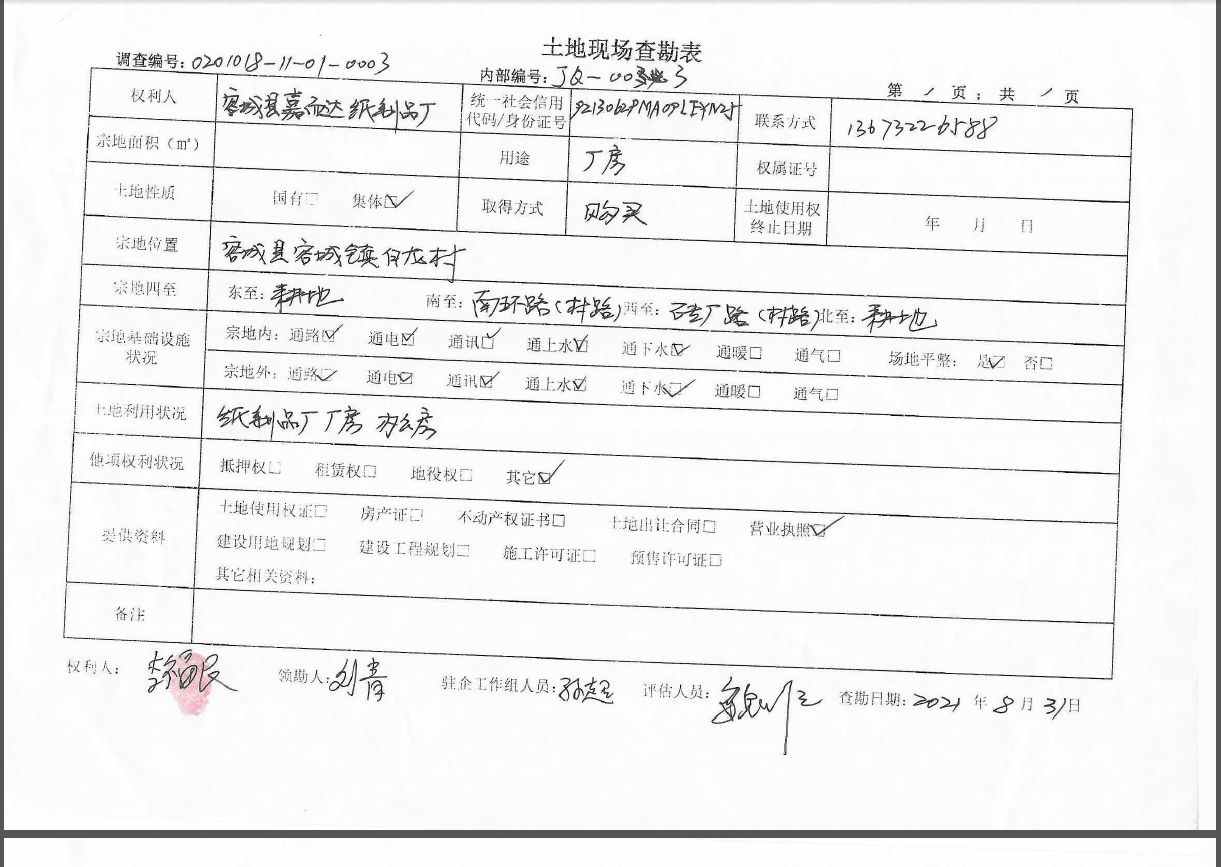 土地现场查勘表
调查编号：0201018-11-01-0003
内部编号：JQ-00 3
第 1 页；共 1 页
权利人 容城县嘉而达纸制品厂 统一社会信用代码/身份证号 联系方式 13673226588
宗地面积（㎡） 用途 厂房 权属证号
土地性质 国有□ 集体☑ 取得方式 购买 土地使用权终止日期 年 月 日
宗地位置 容城县容城镇白龙村
宗地四至 东至：耕地 南至：南环路（村路） 西至：砖厂路（村路） 北至：耕地
宗地基础设施状况 宗地内：通路☑ 通电☑ 通讯☑ 通上水☑ 通下水☑ 通暖□ 通气□ 场地平整： 是☑ 否□
宗地外：通路☑ 通电☑ 通讯☑ 通上水☑ 通下水☑ 通暖□ 通气□
土地利用状况 纸制品厂厂房 办公房
他项权利状况 抵押权□ 租赁权□ 地役权□ 其它☑
提供资料 土地使用权证□ 房产证□ 不动产权证书□ 土地出让合同□ 营业执照☑
建设用地规划□ 建设工程规划□ 施工许可证□ 预售许可证□
其它相关资料：
备注
权利人： 李福民 领勘人：刘青 驻企工作组人员：孙超 评估人员： 查勘日期：2021 年 8 月 31日